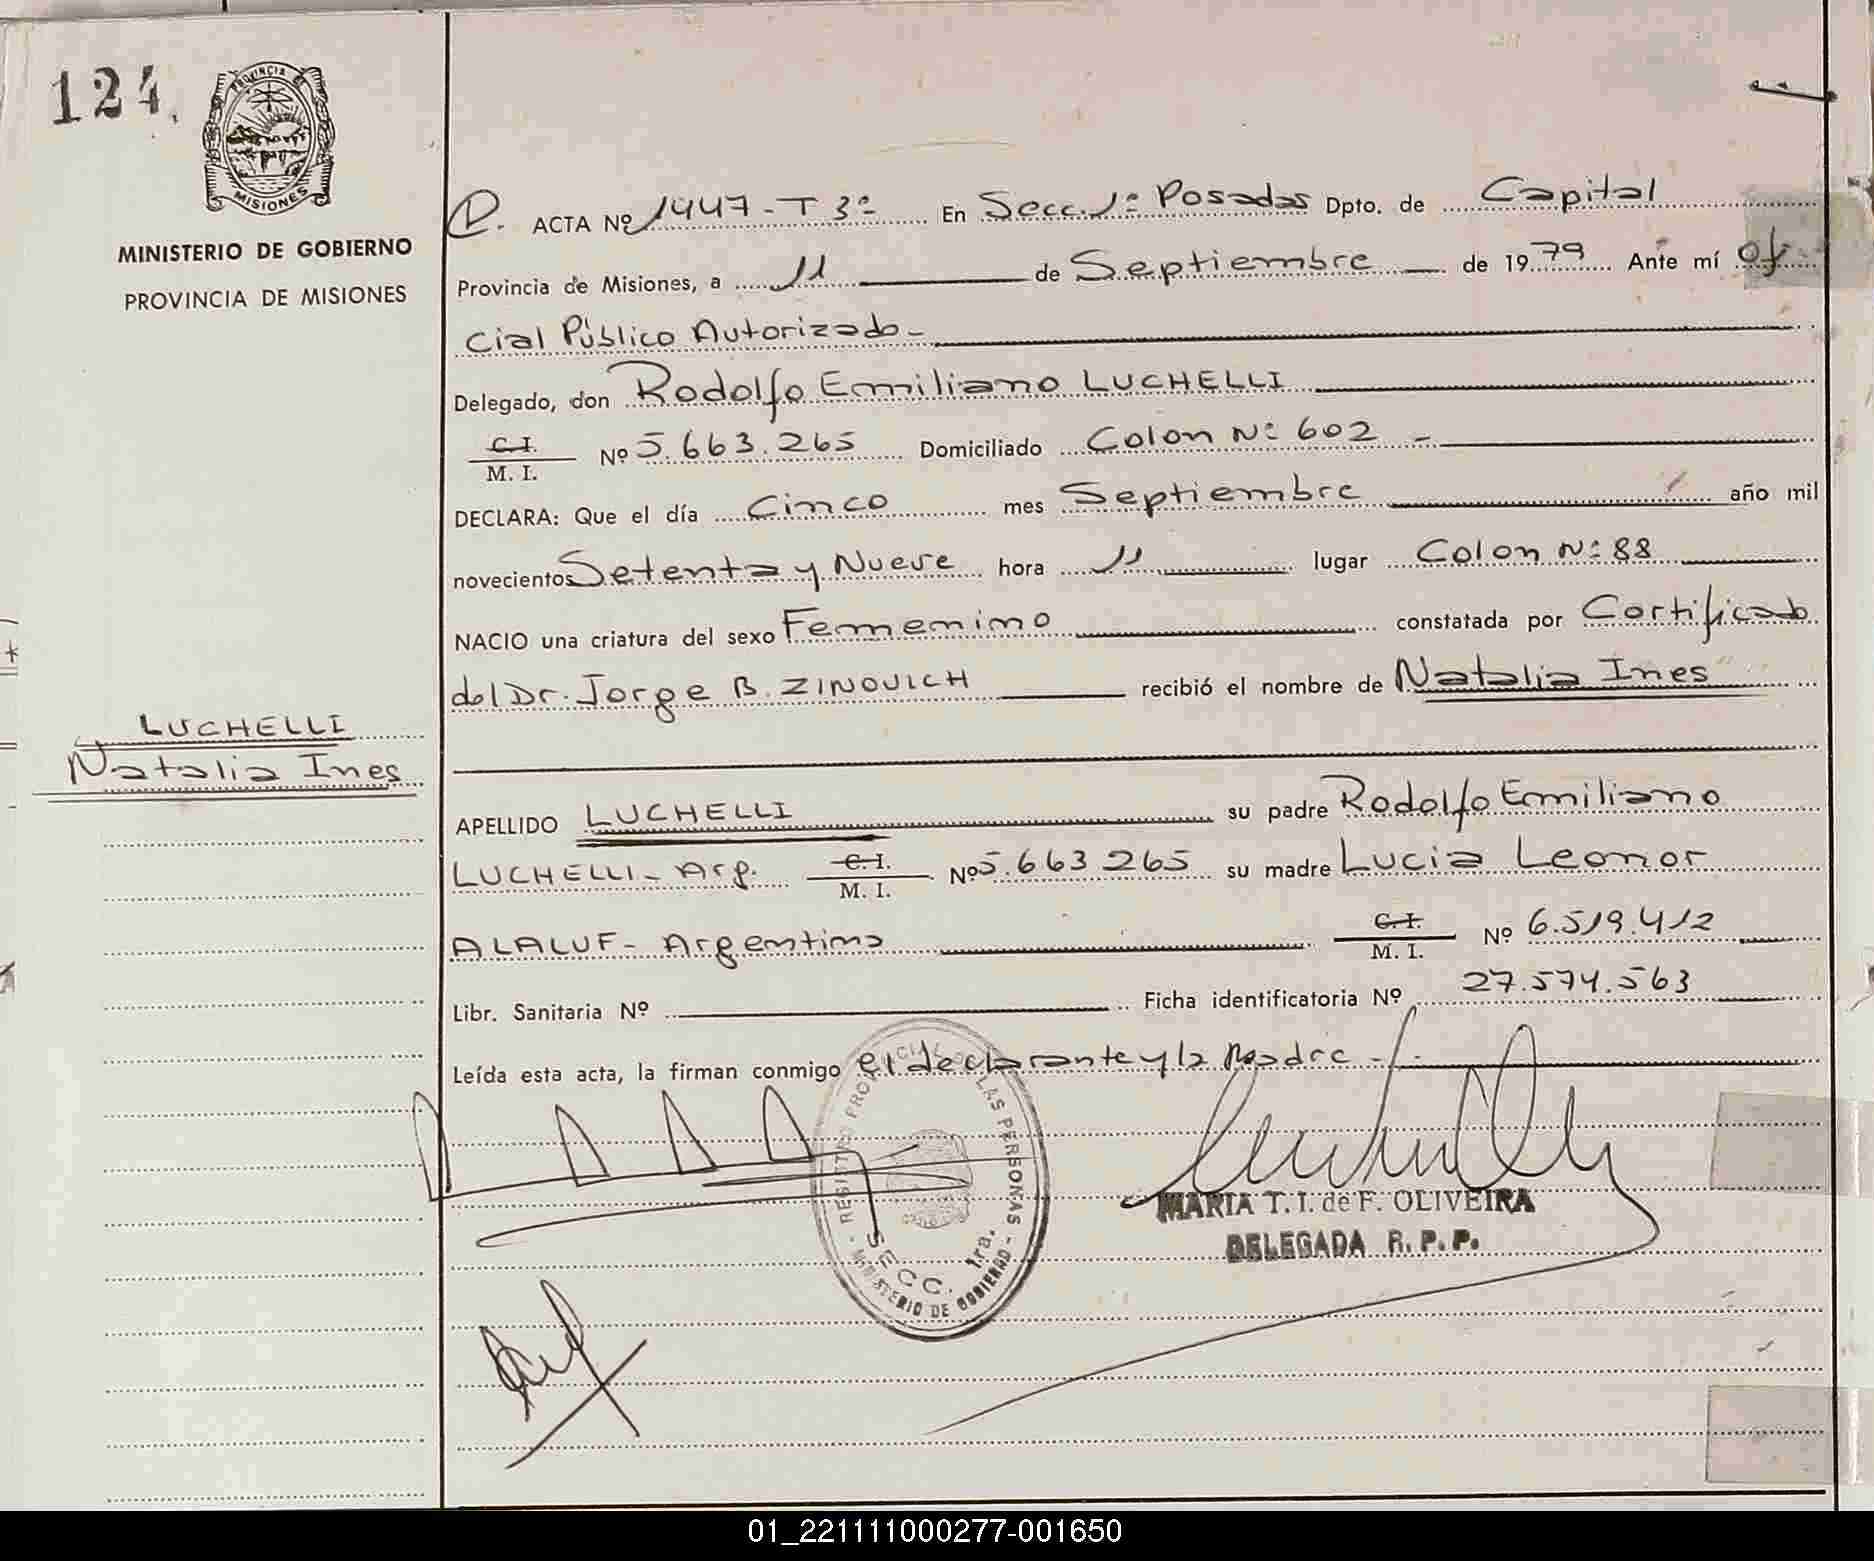 124.
PROVINCIA DE
MISIONES
MINISTERIO DE GOBIERNO
PROVINCIA DE MISIONES
LUCHELLI
Natalia Ines
P. ACTA Nº 1447-T 3º En Secc. 1º Posadas Dpto. de Capital
Provincia de Misiones, a 11 de Septiembre de 1979 Ante mí Ofi
cial Público Autorizado-
Delegado, don Rodolfo Emiliano LUCHELLI
C.I.
M. I. Nº 5.663.265 Domiciliado Colon Nº 602 -
DECLARA: Que el día Cinco mes Septiembre año mil
novecientos Setenta y Nueve hora 11 lugar Colon Nº 88
NACIO una criatura del sexo Femenino constatada por Certificado
del Dr. Jorge B. ZINOVICH recibió el nombre de Natalia Ines
APELLIDO LUCHELLI su padre Rodolfo Emiliano
LUCHELLI- Arg. C.I. M. I. Nº 5.663.265 su madre Lucia Leonor
ALALUF- Argentina C.I. M. I. Nº 6.519.412
Libr. Sanitaria Nº Ficha identificatoria Nº 27.574.563
Leída esta acta, la firman conmigo el declarante y la Madre -
REGISTRO PROVINCIAL DE LAS PERSONAS - MINISTERIO DE GOBIERNO -
SECC. 1ra.
MARIA T. I. de F. OLIVEIRA
DELEGADA R. P. P.
01_221111000277-001650